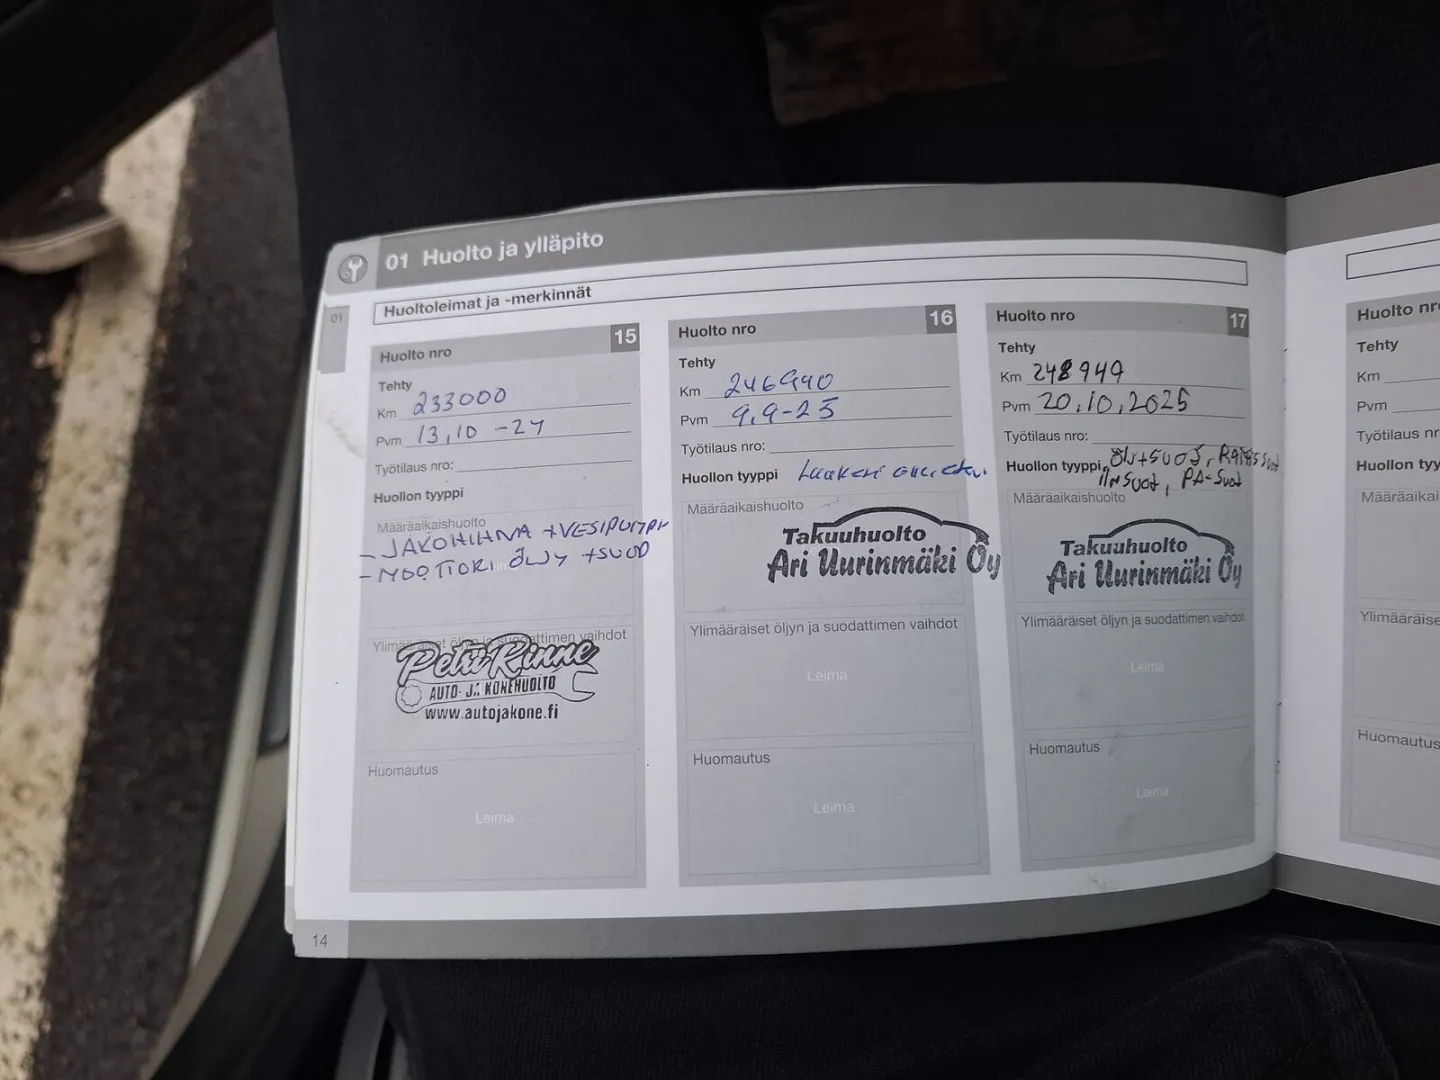 01 Huolto ja ylläpito
01
Huoltoleimat ja -merkinnät
Huolto nro 15
Tehty
Km 233000
Pvm 13,10 -24
Työtilaus nro:
Huollon tyyppi
Määräaikaishuolto
- JAKOHIHNA +VESIPUMPPU
- MOOTTORI ÖLJY +SUOD
Ylimääräiset öljyn ja suodattimen vaihdot
Petri Rinne
AUTO- JA KONEHUOLTO
www.autojakone.fi
Huomautus
Leima
14
Huolto nro 16
Tehty
Km
Pvm 9.9-25
Työtilaus nro:
Huollon tyyppi
Määräaikaishuolto
Takuuhuolto
Ari Uurinmäki Oy
Ylimääräiset öljyn ja suodattimen vaihdot
Leima
Huomautus
Leima
Huolto nro 17
Tehty
Km 248949
Pvm 20.10.2025
Työtilaus nro:
Huollon tyyppi ÖLJ+SUOJ,
Määräaikaishuolto
Takuuhuolto
Ari Uurinmäki Oy
Ylimääräiset öljyn ja suodattimen vaihdot
Leima
Huomautus
Leima
Huolto
Tehty
Km
Pvm
Työtilaus
Huollon
Huomautus